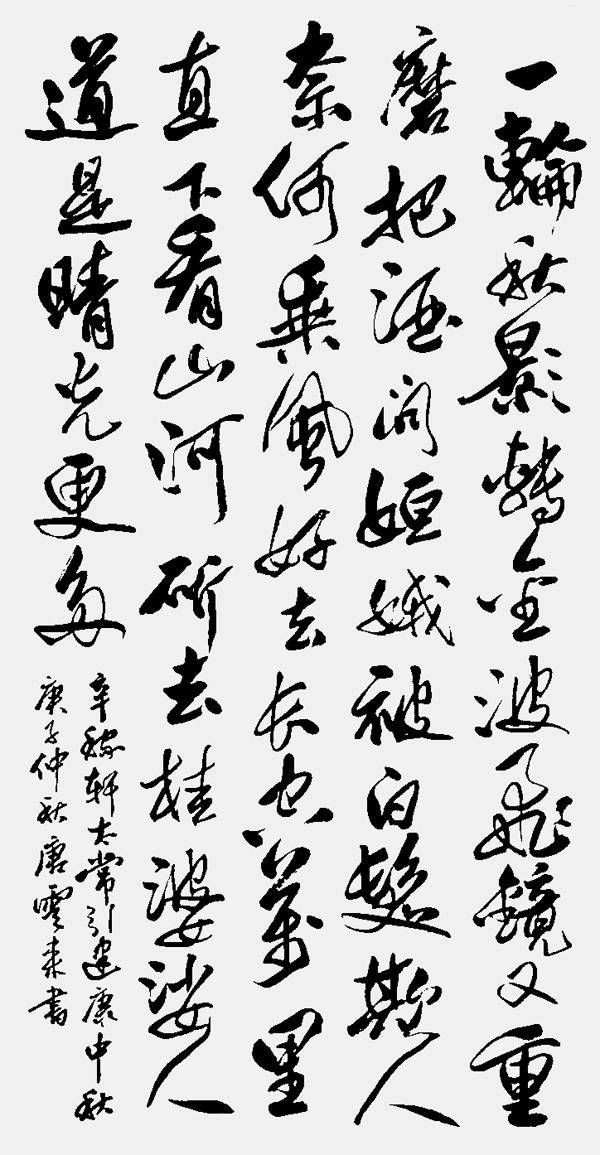 一輪秋影轉金波飛鏡又重
磨把酒问姮娥被白髮欺人
奈何乘風好去长空萬里
直下看山河斫去桂婆娑人
道是晴光更多
辛稼軒太常引建康中秋
庚子仲秋唐雲来書